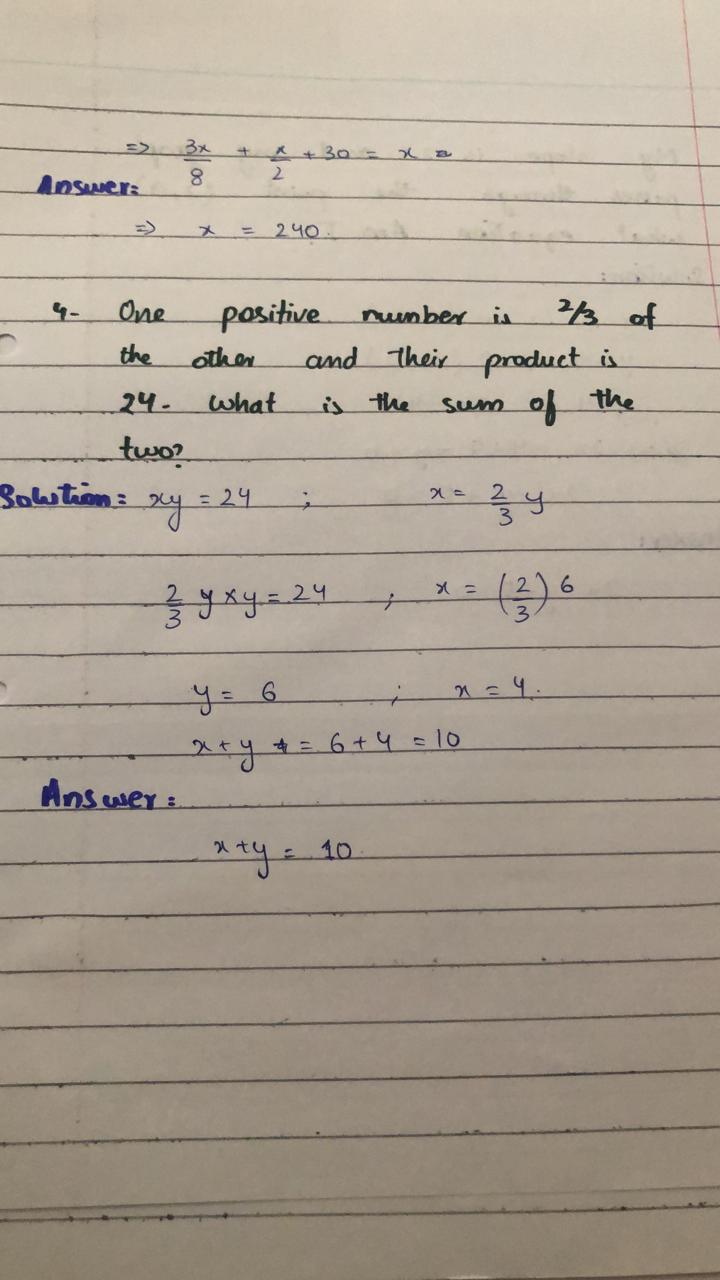 => 3x/8 + x/2 + 30 = x
Answer:
=> x = 240.
4- One positive number is 2/3 of
the other and their product is
24- what is the sum of the
two?
Solution: xy = 24 ; x = 2/3 y
2/3 y × y = 24 ; x = (2/3) 6
y = 6 ; x = 4.
x + y = 6 + 4 = 10
Answer:
x + y = 10.